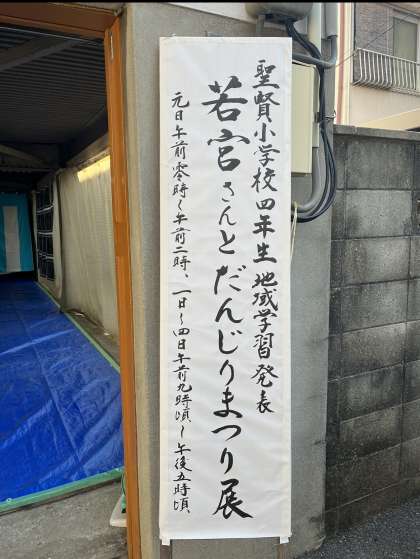 聖賢小学校四年生 地域学習発表
若宮さんとだんじりまつり展
元日午前零時〜午前二時、一日〜四日午前九時頃〜午後五時頃